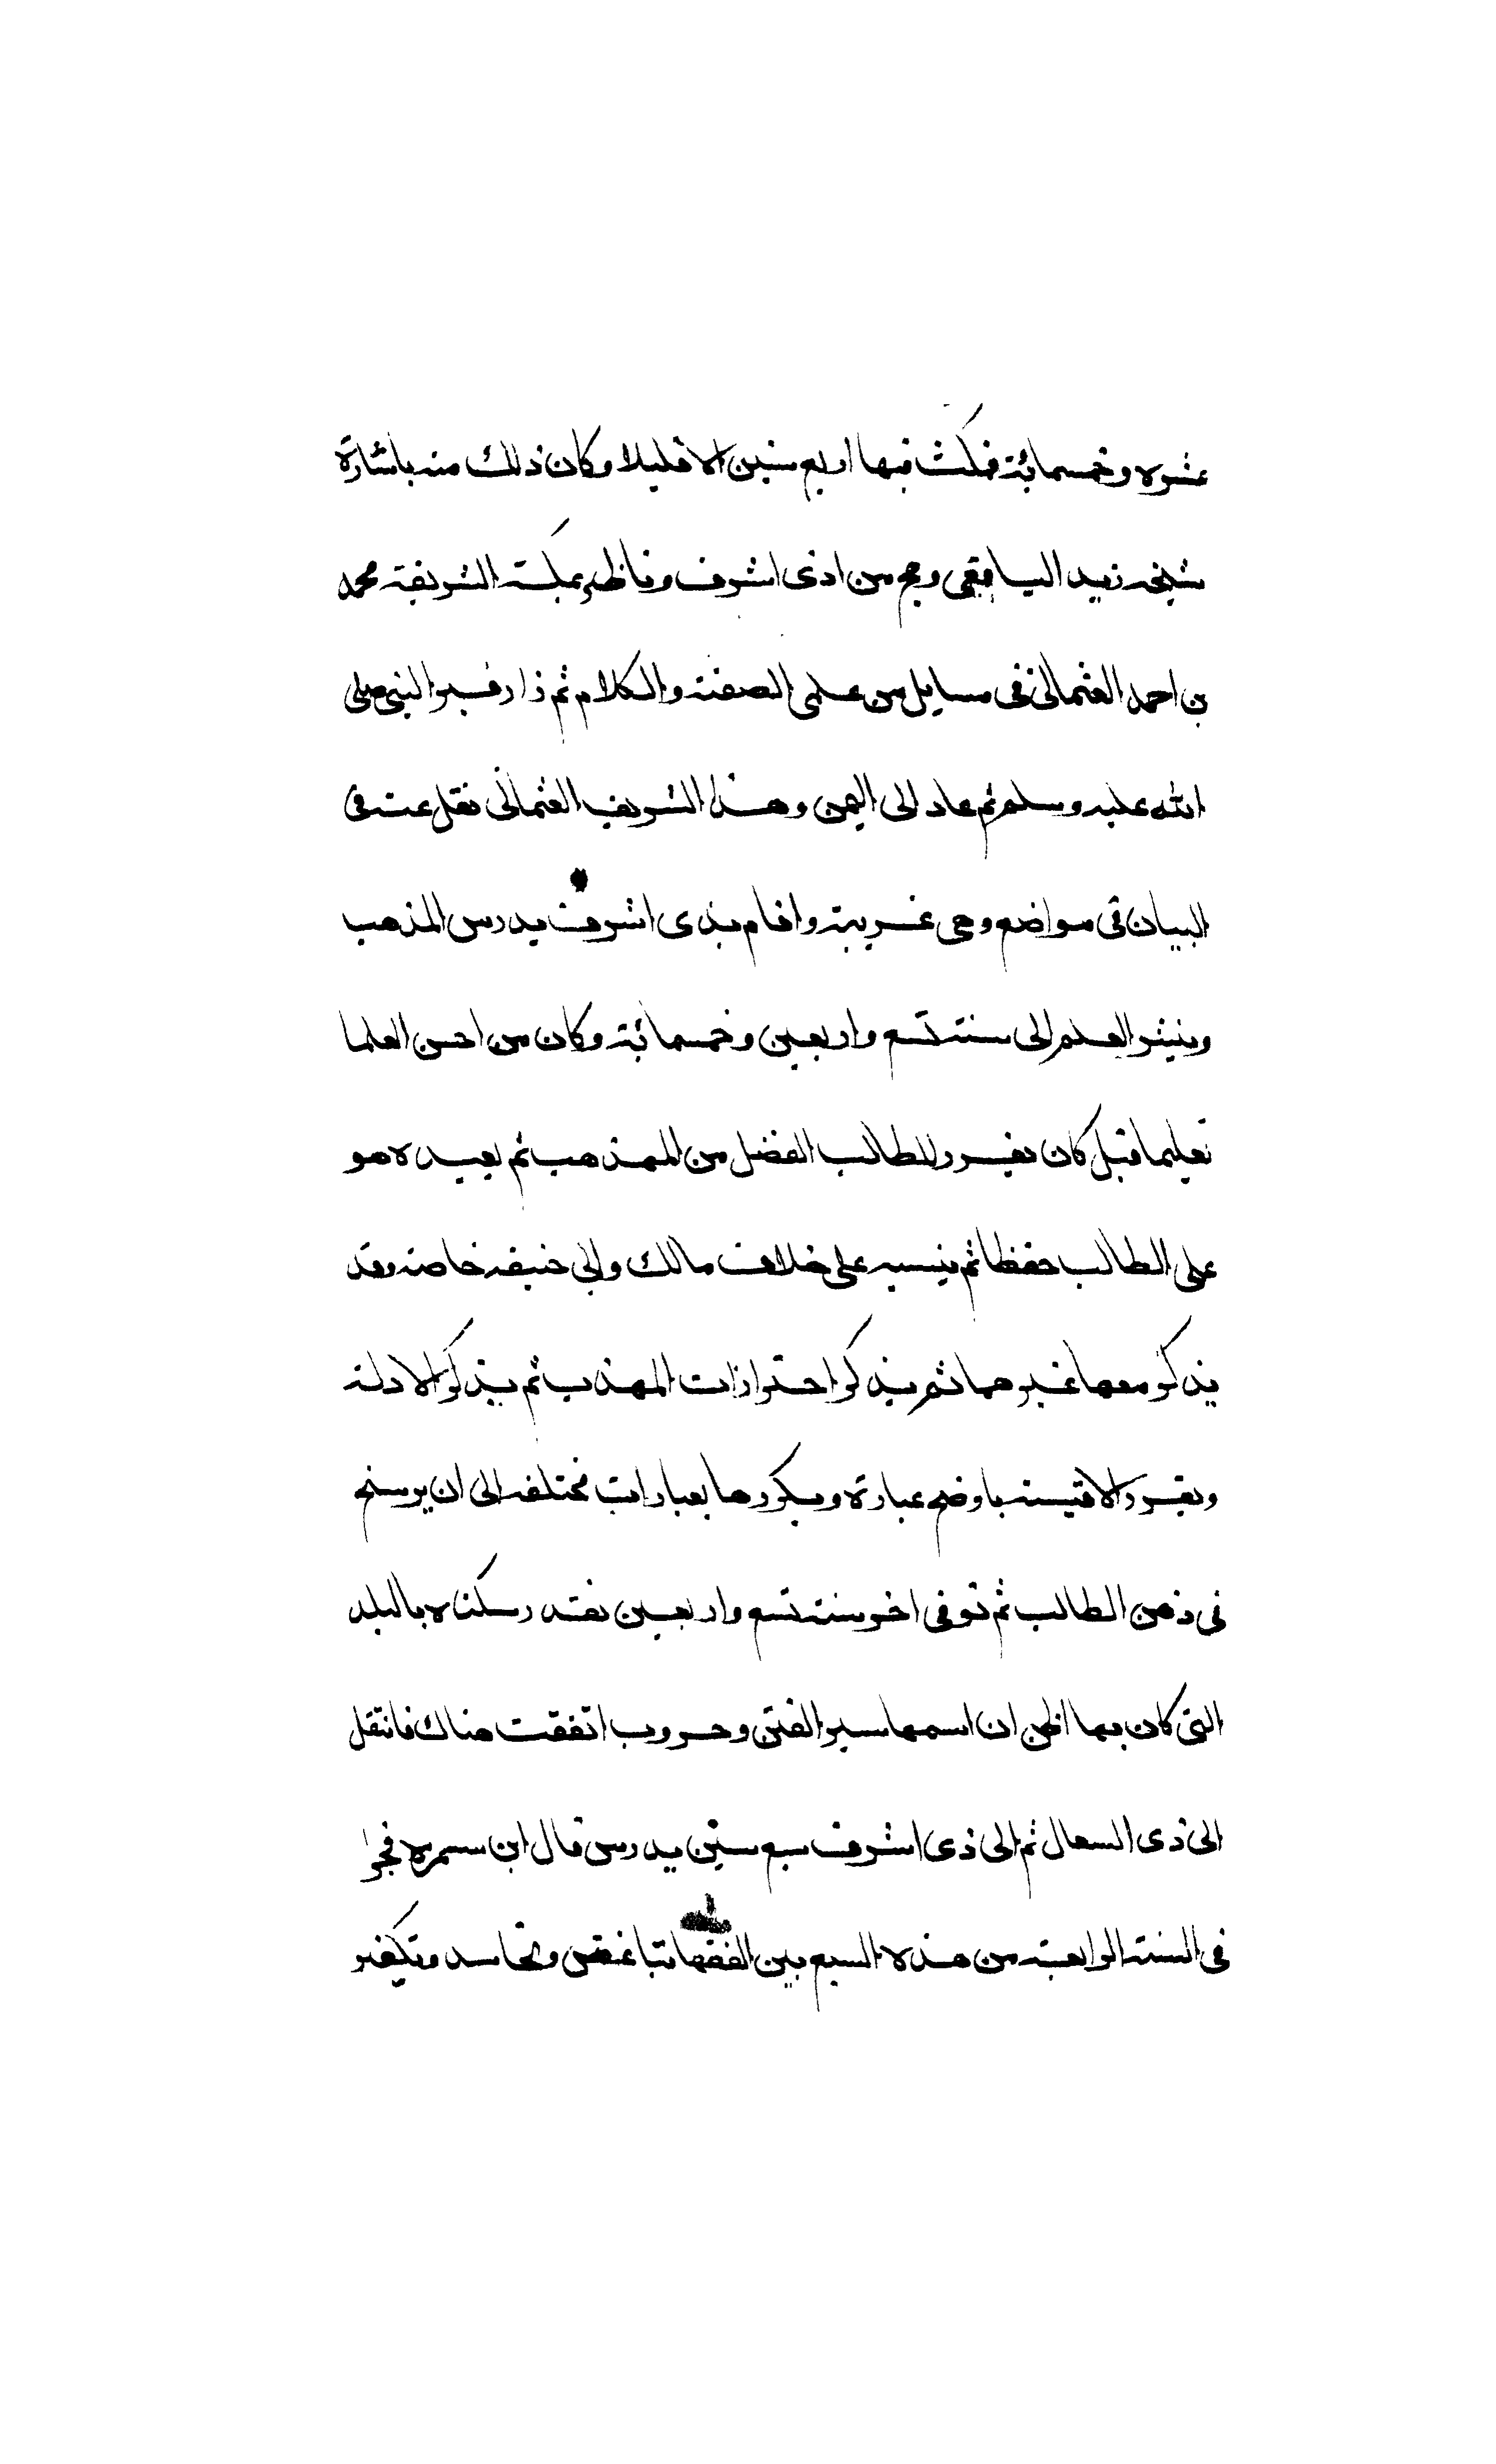 عشره وخمسمائة فمكث فيها اربع سنين الا قليلا وكان ذلك منه باشارة
شيخه زيد اليافعي وحج من ذى اشرف وناظر بمكة الشريفة محمد
بن احمد العثماني في مسايل من علمي الصفة والكلام ثم زار قبر النبي صلى
الله عليه وسلم ثم عاد الى اليمن وهذا الشريف العثماني نقل عنه في
البيان في مواضع وهي غريبة واقام بذى اشرف يدرس المذهب
وينشر العلم الى سنة تسع واربعين وخمسمائة وكان من احسن العلما
تعليما قيل كان يقرر للطالب الفصل من المهذب ثم يعيده هو
على الطالب حفظا ثم ينبه على خلاف مالك وابي حنيفه خاصه وقد
يذكر معها غيرهما ثم يذكر احترازات المهذب ثم يذكر الادلة
ويقرر الاقيسة باوضح عبارة ويكررها بعبارات مختلفه الى ان يرسخ
في ذهن الطالب ثم توفي اخر سنة تسع واربعين سكناه بالبلد
التي كان بها اظن ان اسمها سير الفتن وحروب اتفقت هناك فانتقل
الى ذى السفال ثم الى ذى اشرف سبع سنين يدرس قال ابن سمره فجرا
في السنة الرابعة من هذه السبع بين الفقها تباغض وتحاسد وتكفير